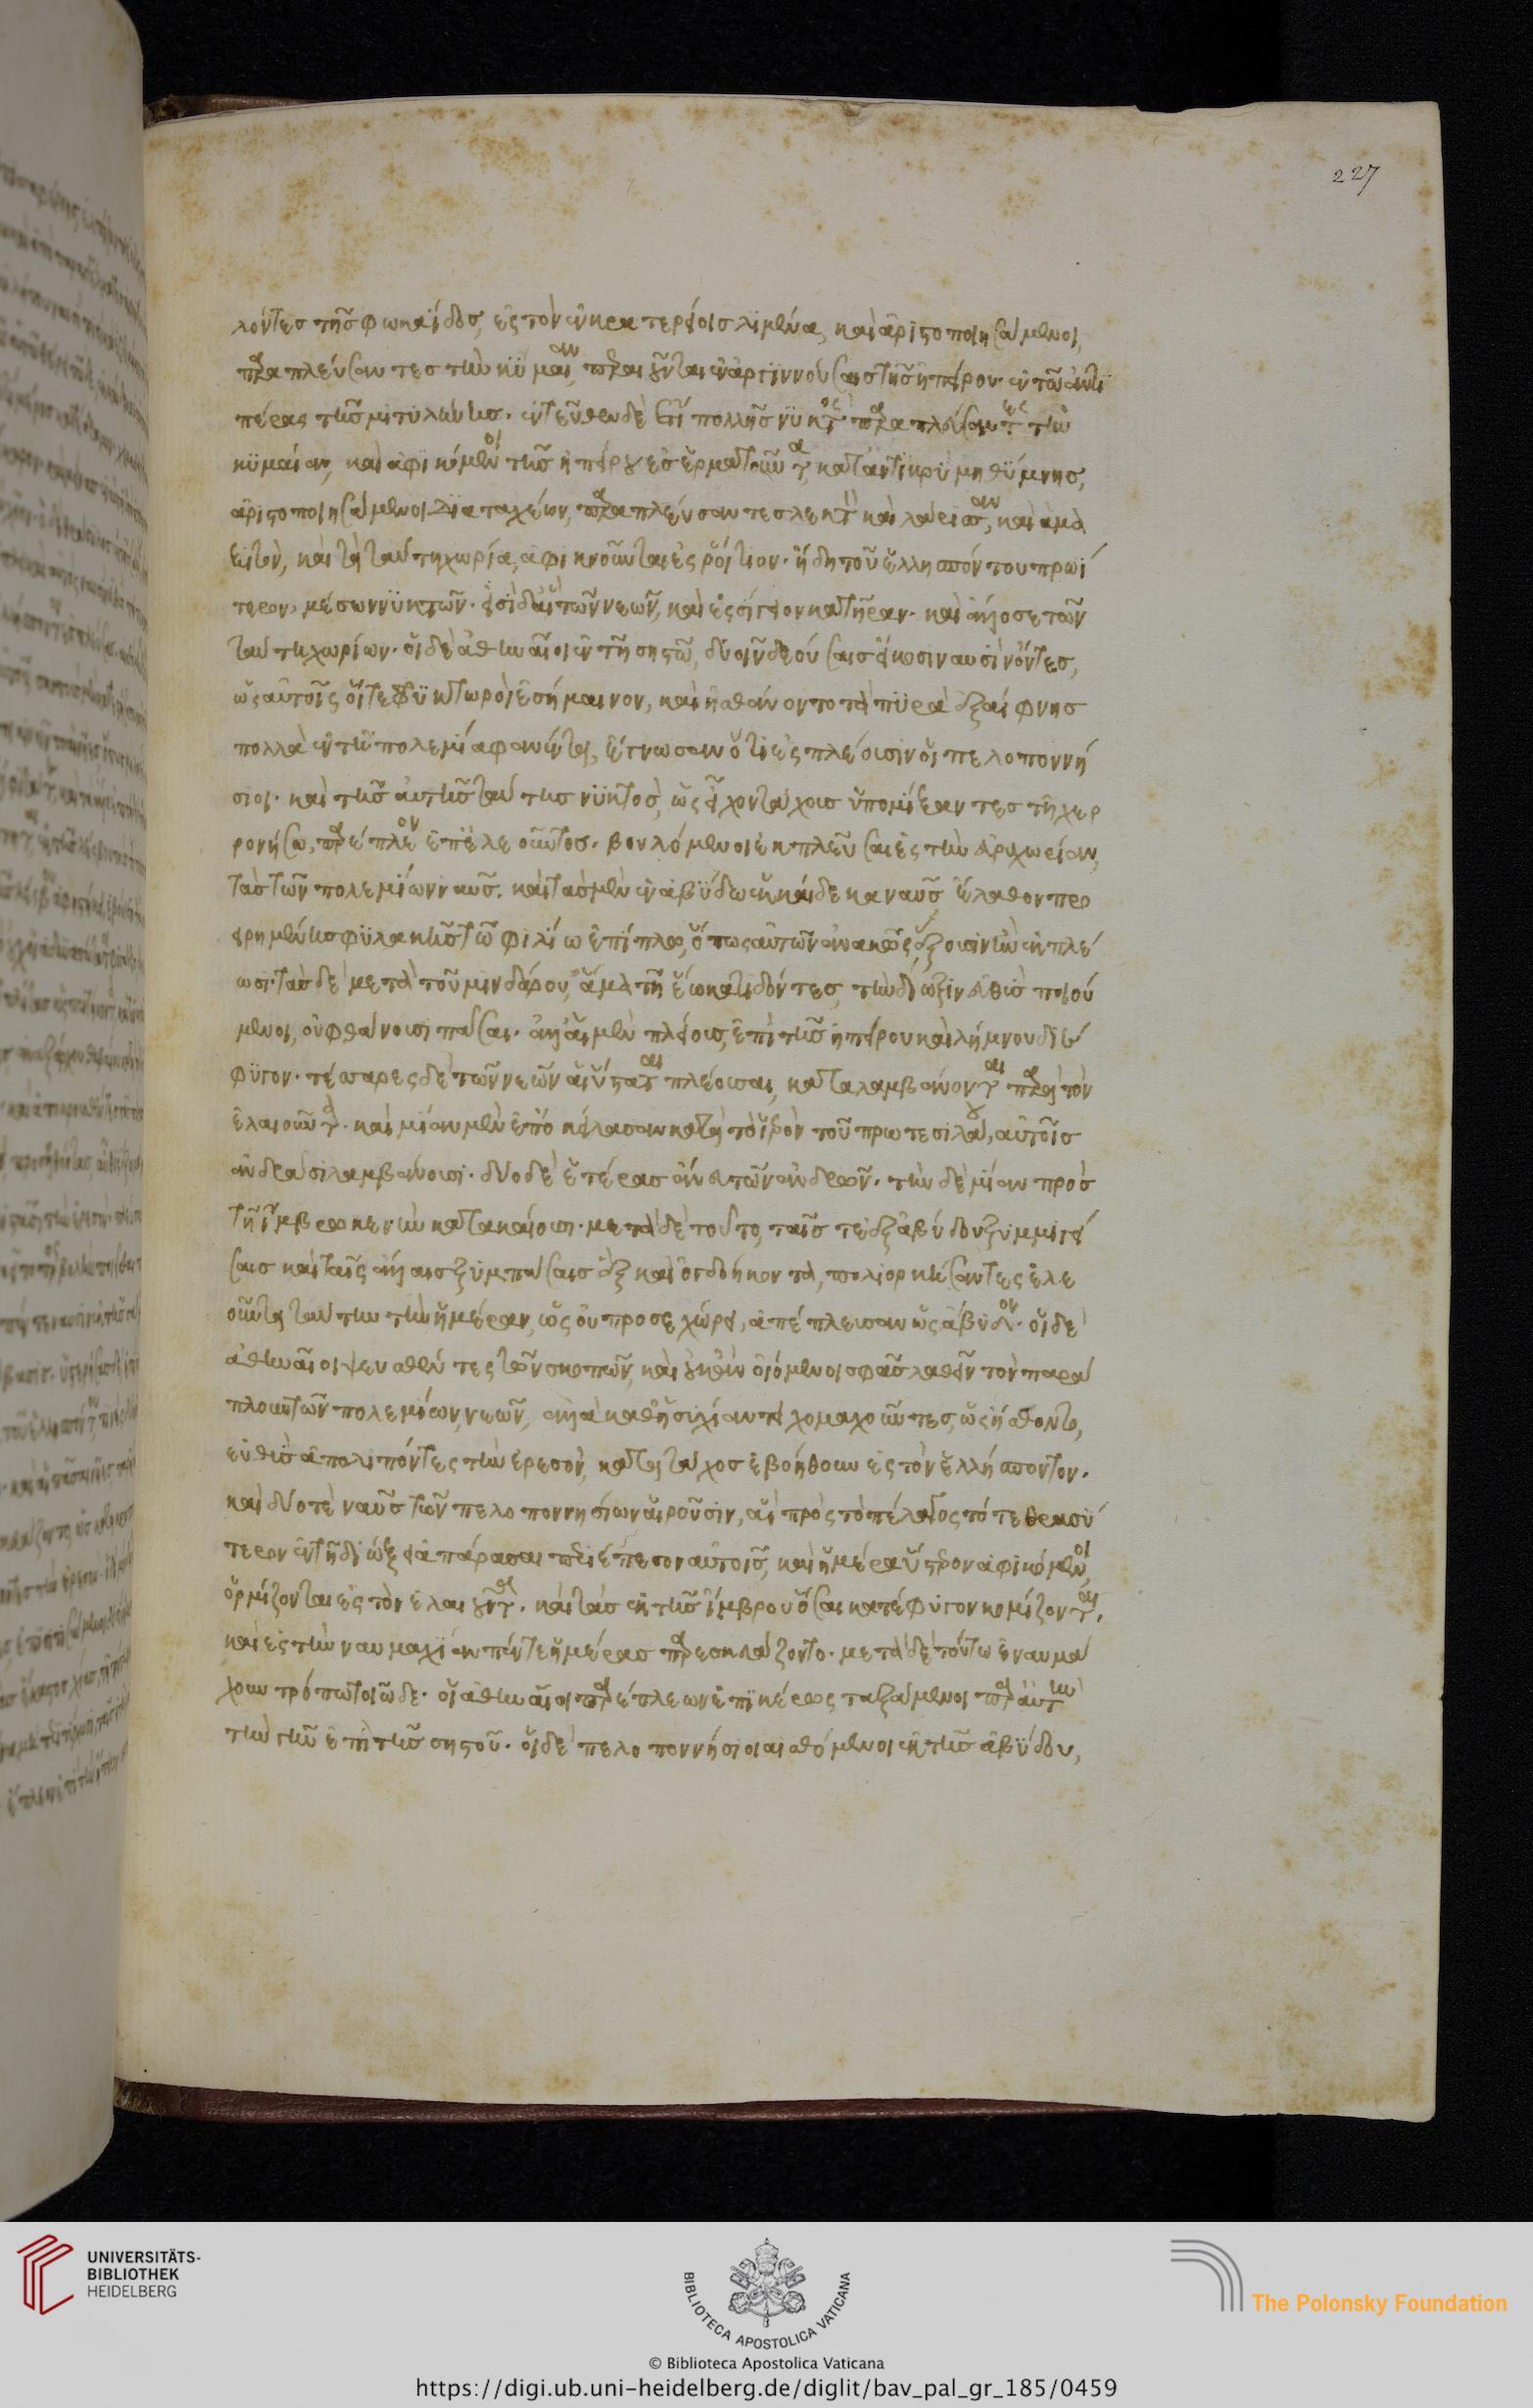 227
λόντες τῆς φωκαΐδος, ἐς τὸν ἐν κρατερίοις λιμένα, καὶ ἀριστοποιησάμενοι,
παραπλεύσαντες τὴν κυμαίαν, ἐν ἀργιννούσαις τῆς ἠπείρου ἐν τῶ ἀντι
πέρας τῆς μιτυλήνης. ἐντεῦθεν δὲ ἔτι πολλῆς νυκτὸς παραπλεύσαντες τὴν
κυμαίαν, καὶ ἀφικόμενοι τῆς ἠπείρου ἐς ἑρματοῦντα κατ' ἀντικρὺ μηθύμνης,
ἀριστοποιησάμενοι διαταχέων, παραπλεύσαντες λεκτὸν καὶ λάρισαν, καὶ ἁμα
ξιτὸν, καὶ τὰ ταύτη χωρία, ἀφικνοῦνται ἐς ῥοίτιον. ἤδη τοῦ ἑλλησπόντου πρωί
τερον μέσων νυκτῶν. εἰσὶ δ' αἳ τῶν νεῶν, καὶ ἐς σίγειον κατῆραν. καὶ ἄλλοσε τῶν
ταύτη χωρίων. οἱ δὲ ἀθηναῖοι ἐν τῆ σηστῶ, δυοῖν δεούσαις εἴκοσι ναυσὶν ὄντες,
ὡς αὐτοῖς οἵ τε φρυκτωροὶ ἐσήμαινον, καὶ ἠσθάνοντο τὰ πυρὰ ἐξαίφνης
πολλὰ ἐν τῆ πολεμία φανέντα, ἔγνωσαν ὅτι ἐσπλέουσιν οἱ πελοποννή
σιοι. καὶ τῆς αὐτῆς ταύτης νυκτὸς, ὡς εἶχον τάχους ὑπομίξαντες τῆ χερ
ρονήσω, παρέπλεον ἐπ' ἐλεοῦντος. βουλόμενοι ἐκπλεῦσαι ἐς τὴν εὐρυχωρίαν,
τὰς τῶν πολεμίων ναῦς. καὶ τὰς μὲν ἐν ἀβύδω ἑκκαίδεκα ναῦς ἔλαθον προ
ειρημένης φυλακῆς τῶ φιλίω ἐπίπλω, ὅπως αὐτῶν ἀνακῶς ἕξουσιν ἢν ἐκπλέ
ωσι. τὰς δὲ μετὰ τοῦ μινδάρου, ἅμα τῆ ἕω κατιδόντες, τὴν δίωξιν εὐθὺς ποιού
μενοι, οὐ φθάνουσι πᾶσαι. ἀλλ' αἱ μὲν πλείους, ἐπὶ τῆς ἠπείρου καὶ λήμνου διέ
φυγον. τέσσαρες δὲ τῶν νεῶν αἱ ὕσταται πλέουσαι, καταλαμβάνονται παρὰ τὸν
ἐλαιοῦντα. καὶ μίαν μὲν ἐποκείλασαν κατὰ τὸ ἱερὸν τοῦ πρωτεσιλάου, αὐτοῖς
ἀνδράσι λαμβάνουσι. δύο δὲ ἑτέρας ἄνευ τῶν ἀνδρῶν. τὴν δὲ μίαν πρὸς
τῆ ἴμβρω κενὴν κατακαίουσι. μετὰ δὲ τοῦτο, ταῖς τε ἐξ ἀβύδου ξυμμιγεί
σαις καὶ ταῖς ἄλλαις ξυμπάσαις ἓξ καὶ ὀγδοήκοντα, πολιορκήσαντες ἐλε
οῦντα ταύτην τὴν ἡμέραν, ὡς οὐ προσεχώρει, ἀπέπλευσαν ὡς ἄβυδον. οἱ δὲ
ἀθηναῖοι ψευσθέντες τῶν σκοπῶν, καὶ οὐκ ἂν οἰόμενοι σφᾶς λαθεῖν τὸν παρά
πλουν τῶν πολεμίων νεῶν, ἀλλὰ καθ' ἡσυχίαν τειχομαχοῦντες, ὡς ἤσθοντο,
εὐθὺς ἀπολιπόντες τὴν ἔρεσον, κατὰ τάχος ἐβοήθουν ἐς τὸν ἑλλήσποντον.
καὶ δύο τε ναῦς τῶν πελοποννησίων αἱροῦσιν, αἳ πρὸς τὸ πέλαγος τότε θρασύ
τερον ἐν τῆ διώξει ἀπάρασαι περιέπεσον αὐτοῖς, καὶ ἡμέρα ὕστερον ἀφικόμενοι,
ὁρμίζονται ἐς τὸν ἐλαιοῦντα. καὶ τὰς ἐκ τῆς ἴμβρου ὅσαι κατέφυγον κομίζονται.
καὶ ἐς τὴν ναυμαχίαν πέντε ἡμέρας παρεσκευάζοντο. μετὰ δὲ τοῦτο ἐναυμά
χουν τρόπω τοιῶδε. οἱ ἀθηναῖοι παρέπλεον ἐπὶ κέρως ταξάμενοι παρ' αὐτὴν
τὴν γῆν ἐπὶ τῆς σηστοῦ. οἱ δὲ πελοποννήσιοι αἰσθόμενοι ἐκ τῆς ἀβύδου,
UNIVERSITÄTS-
BIBLIOTHEK
HEIDELBERG
BIBLIOTECA APOSTOLICA VATICANA
The Polonsky Foundation
© Biblioteca Apostolica Vaticana
https://digi.ub.uni-heidelberg.de/diglit/bav_pal_gr_185/0459